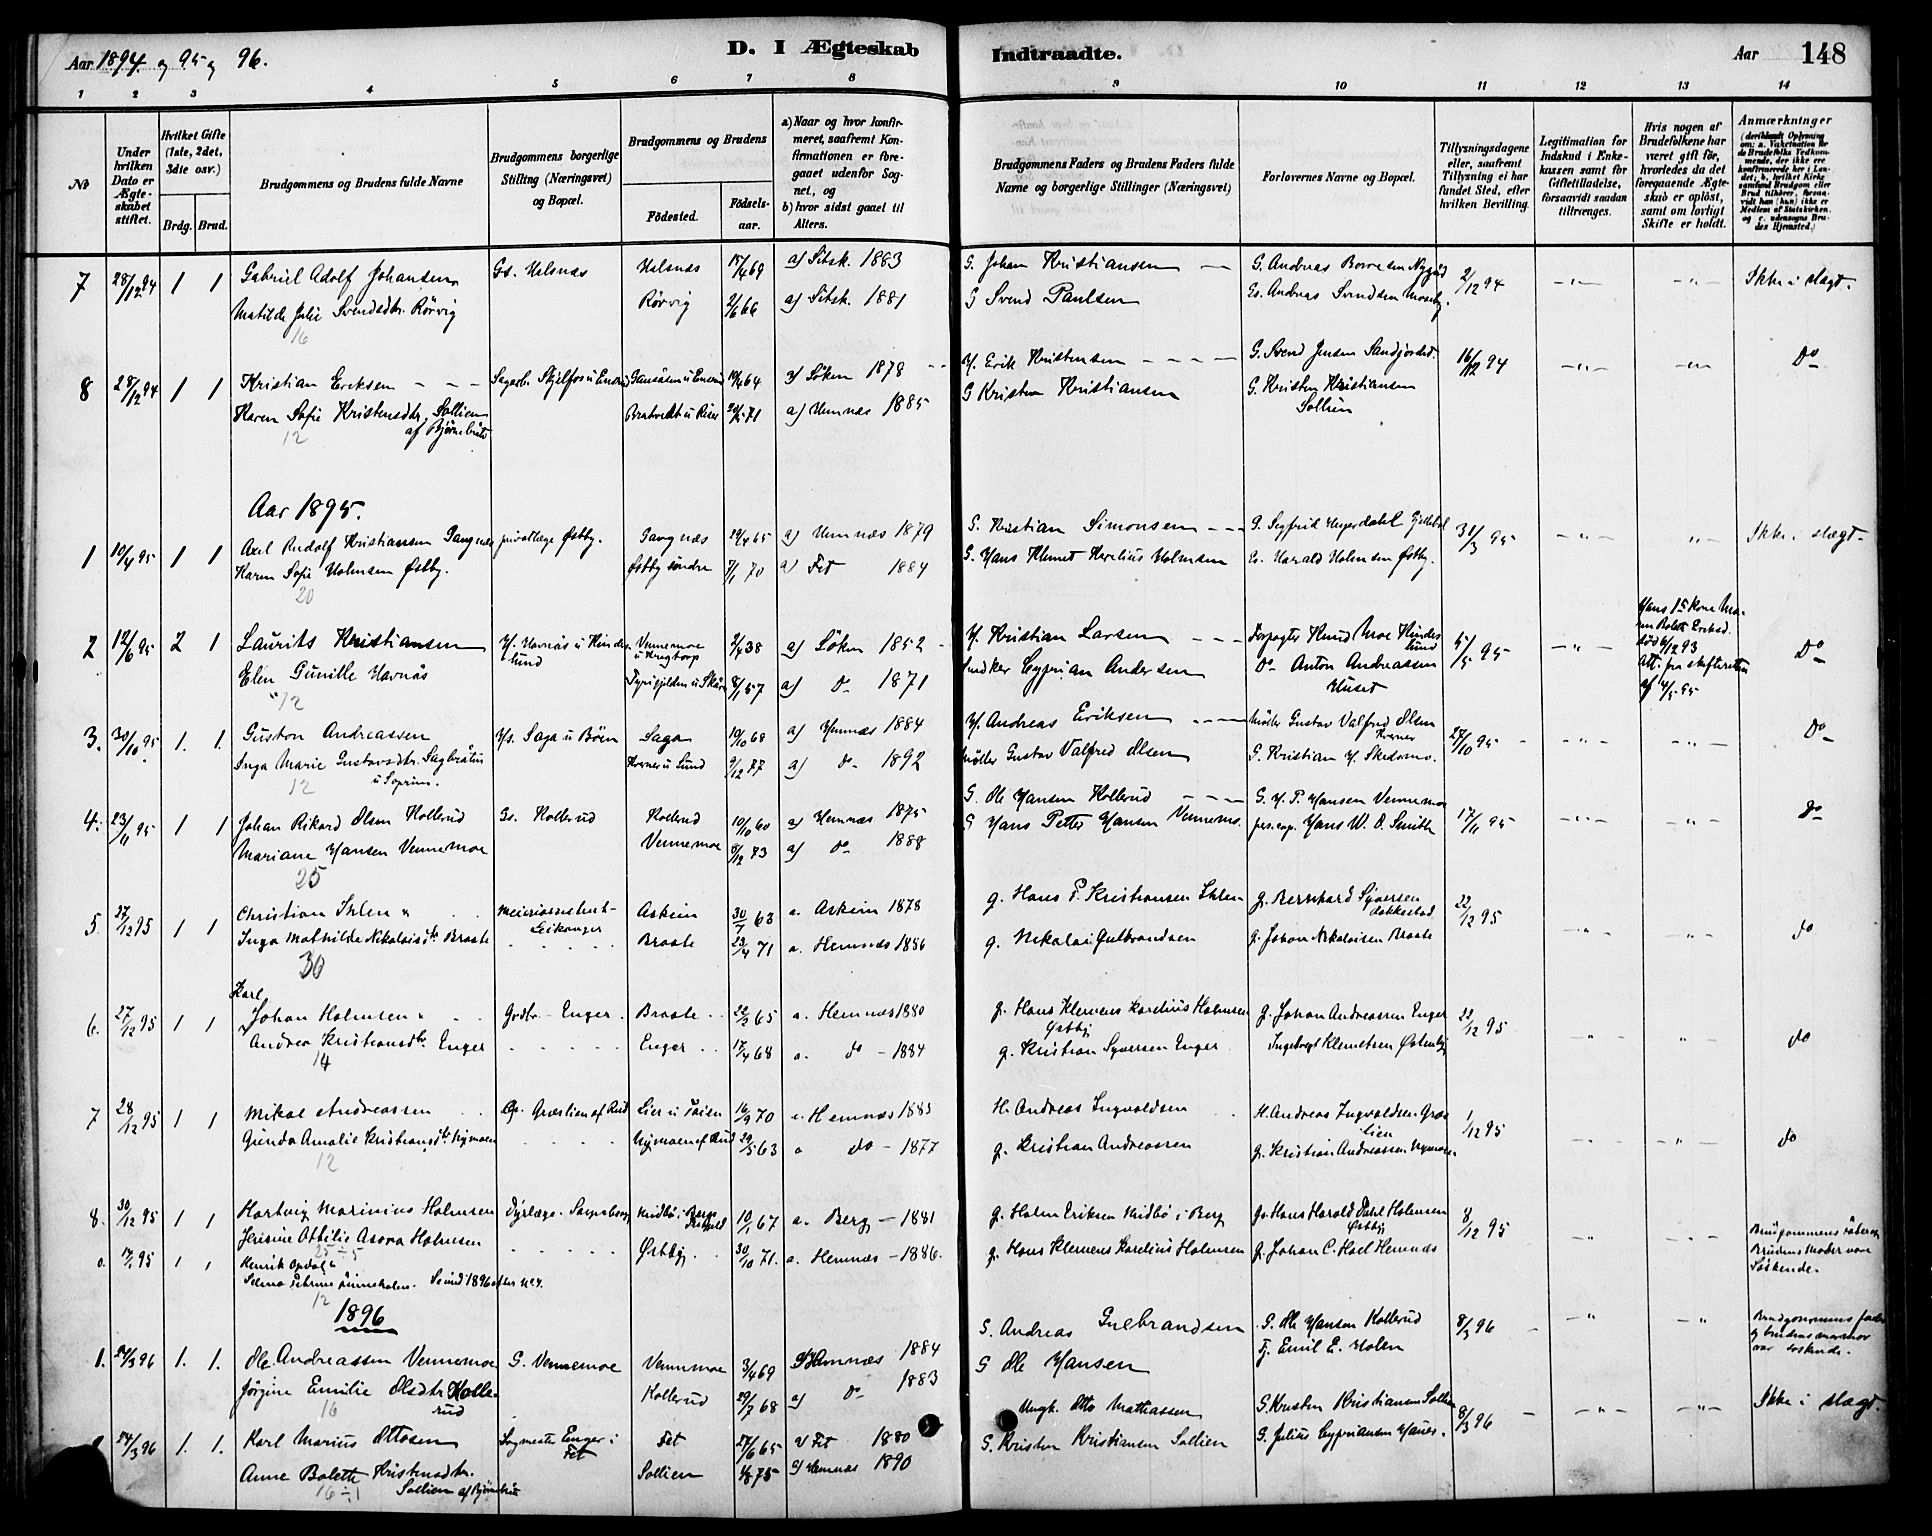 Aar 1894 og 95 og 96.
D. I Ægteskab
Indtraadte.
Aar
148
1 2 3 4 5 6 7 8 9 10 11 12 13 14
No
Under hvilken Dato er Ægteskabet stiftet.
Hvilket Gifte (1ste, 2det, 3die osv.)
Brdg. Brud.
Brudgommens og Brudens fulde Navne
Brudgommens borgerlige Stilling (Næringsvei) og Bopæl.
Brudgommens og Brudens
Fødested.
Fødselsaar.
a) Naar og hvor konfirmeret, saafremt Konfirmationen er foregaaet udenfor Sognet, og
b) hvor sidst gaaet til Alters.
Brudgommens Faders og Brudens Faders fulde Navne og borgerlige Stillinger (Næringsvei)
Forlovernes Navne og Bopæl.
Tillysningsdagene eller, saafremt Tillysning ei har fundet Sted, efter hvilken Bevilling.
Legitimation for Indskud i Enkekassen samt for Giftetilladelse, forsaavidt saadan tiltrænges.
Hvis nogen af Brudefolkene har været gift før, hvorledes da det foregaaende Ægteskab er opløst, samt om lovligt Skifte er holdt.
Anmærkninger
7 28/12 94 1 1 Gabriel Adolf Johansen Gs. Halsnæs Halsnæs /4 69 a) Sitsk. 1883 G. Johan Kristiansen G. Andreas Borresen Nygård 2/12 94 Ikke i slægt.
Matilde Julie Svendsdtr. Rörvig Rörvig 2/6 66 a) Sitsk. 1881 G Svend Paulsen Gs. Andreas Svendsen
16
8 28/12 94 1 1 Kristian Eriksen Sagarb. Skjelfos u Enerud 64 a) Söken 1878 H. Erik Kristensen G. Svend Jensen Sandjordet 16/12 94 Do
Karen Sofie Kristensdtr. Sollien af Bjørnebråte 71 a) Hemnæs 1885 G Kristen Kristiansen G. Kristen Kristiansen Sollien
12
Aar 1895.
1 10/4 95 1 1 Axel Rudolf Kristiansen Gangnæs privatlæge Østby. Gangnæs 29/4 65 a) Hemnæs 1879 G. Kristian Simonsen G. Segfrid Heyerdahl 31/3 95 Ikke i slægt.
Karen Sofie Holmsen Østby. Østby söndre 7/1 70 a) Fet 1884 G. Hans Klemet Karelius Holmsen Gs. Harald Holmsen Østby.
20
2 12/6 95 2 1 Laurits Kristiansen H. Havnås u Hindeslund Vennemoe u Krogtorp 2/4 38 a) Söken 1852 H. Kristian Larsen Forpagter Knud Moe Hindeslund 5/5 95 Hans 1ste Kone Maren Bolette Eriksd. död 6/12 93 Att. fra skifteretten af 4/5 95 Do
Elen Gunille Havnås 8/1 57 a) do 1871 Snedker Cyprian Andersen Do Anton Andreassen Huset
12
3. 30/10 95 1. 1. Gustav Andreassen Hs. Saga u Böen Saga 10/10 68 a) Hemnæs 1884 H. Andreas Eriksen Möller Gustav Valfred Olsen Kverner 27/10 95 Do
Inga Marie Gustavsdtr. Sagbråten u Soprim. Kverner u Lund 9/12 77 a) do 1892 Möller Gustav Valfred Olsen G. Kristian H. Skedsmo.
12
4. 23/11 95 1 1 Johan Rikard Olsen Kollerud Gs. Kollerud Kollerud 10/10 60 a) Hemnæs 1875 G. Ole Hansen Kollerud G. H. P. Hansen Vennemoe 17/11 95 do
Mariane Hansen Vennemoe Vennemoe 8/12 73 a) do 1888 G Hans Petter Hansen Vennemo. pers. cap. Hans W. O. Smith
25
5. 27/12 95 1 1 Christian Ihlen Meieriassistent Leikanger Askim 30/7 63 a. Askim 1878 g. Hans P. Kristiansen Ihlen g. Bernhard Syversen 22/12 95 do
Inga Mathilde Nikolaisdtr Braate Braate 23/4 71 a. Hemnæs 1886 g. Nikolai Gulbrandsen g. Johan Nikolaisen Braate
30
6. 27/12 95 1 1 Karl Johan Holmsen Grdbr. Enger Braate 22/2 65 a. Hemnæs 1880 g. Hans Klemens Karelius Holmsen Østby g. Johan Andreassen Enger 22/12 95 do
Andrea Kristiansdtr Enger Enger 17/4 68 a. do - 1884 g. Kristian Syversen Enger Ingebregt Klemetsen Østenby
14
7 28/12 95 1 1 Mikal Andreassen Gs. Græslien af Rud Lier u Toien 16/9 70 a. Hemnæs 1885 H. Andreas Ingvaldsen H. Andreas Ingvaldsen Græslien 1/12 95 do
Gunda Amalie Kristiansdtr Nymoen Nymoen af Rud 29/5 63 a do - 1877 g. Kristian Andreassen g. Kristian Andreassen Nymoen.
12
8. 30/12 95 1 1 Hartvig Marinius Holmsen Dyrlæge. Sarpsborg Kridbö i Berg 10/1 67 a. Berg - 1881 g. Holm Eriksen Kridbö i Berg gs. Hans Harald Dahl Holmsen Østby 8/12 95 Brudgommens fader og Brudens Moder vare Söskende.
Jensine Othilie Asora Holmsen Østby 30/10 71. a. Hemnæs - 1886. g. Hans Klemens Karelius Holmsen g. Johan C. Hoel Hemnæs
25 ÷ 5
o. 17/1 95 1 1 Henrik Opdal
Selma Petrine Linneholm. Se ind 1896 efter no 4.
12
1896
1. 24/3 96 1. 1. Ole Andreassen Vennemoe G. Vennemoe Vennemoe 3/4 69 a) Hemnæs 1884 G. Andreas Gulbrandsen G. Ole Hansen Kollerud 8/3 96 Brudgommens fader og brudens mormor var soskende.
Jörgine Emilie Olsdtr. Kollerud Kollerud 29/7 68 a) do 1883 G Ole Hansen Fj. Emil E. Holen
16
24/3 96 1. 1. Karl Marius Ottosen Sogmester Enger i Fet Fet 27/6 65 a) Fet 1880 Ungk. Otto Mathiassen G. Kristen Kristiansen Sollien 8/3 96 Ikke i slægt.
Anne Bolette Kristensdtr. Sollien af Bjørnebråte Sollien 75 a) Hemnæs 1890 G. Kristen Kristiansen Sollien G. Julius Cypriansen Hanes.
16 ÷ 1